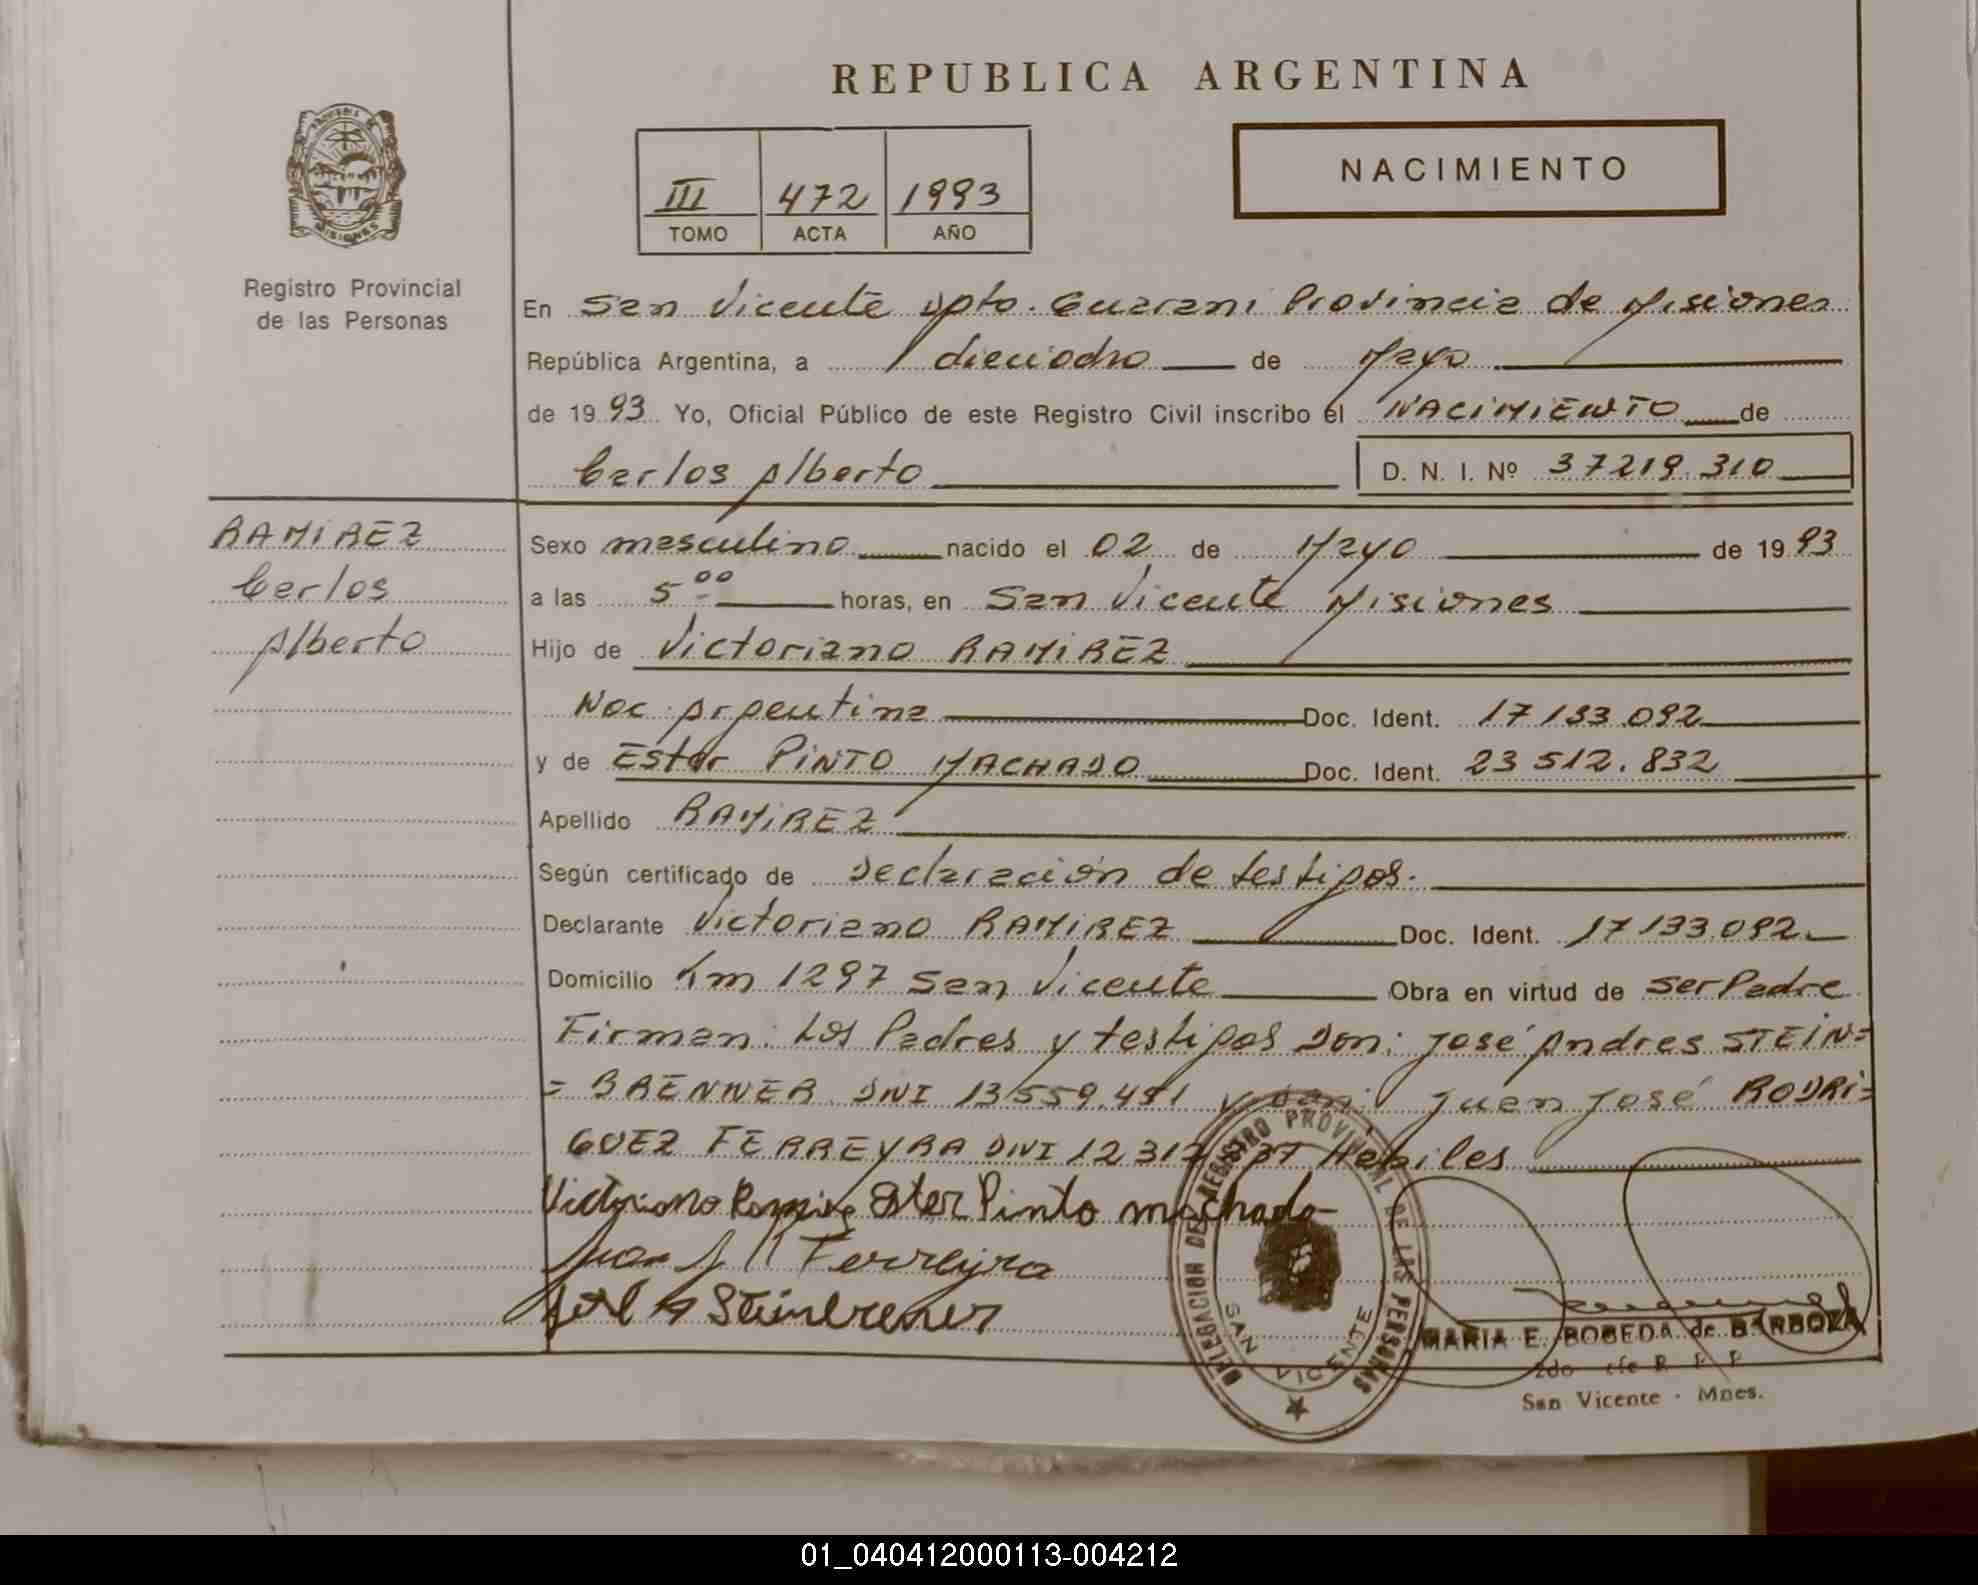 REPUBLICA ARGENTINA
III 472 1993
TOMO ACTA AÑO
NACIMIENTO
PROVINCIA DE MISIONES
Registro Provincial
de las Personas
En San Vicente Dpto. Guarani Provincia de Misiones
República Argentina, a dieciocho de Mayo
de 1993 Yo, Oficial Público de este Registro Civil inscribo el NACIMIENTO de
Carlos Alberto D. N. I. Nº 37219.310
RAMIREZ
Carlos
Alberto
Sexo masculino nacido el 02 de Mayo de 1993
a las 5 00 horas, en San Vicente Misiones
Hijo de Victoriano RAMIREZ
Nac. Argentina Doc. Ident. 17133.092
y de Ester PINTO MACHADO Doc. Ident. 23512.832
Apellido RAMIREZ
Según certificado de Declaración de testigos.
Declarante Victoriano RAMIREZ Doc. Ident. 17133.092
Domicilio Km 1297 San Vicente Obra en virtud de ser Padre
Firman: Los Padres y testigos Don: José Andres STEIN=
=BRENNER DNI 13559.491 y don: Juan José RODRI=
GUEZ FERREYRA DNI 12312 Habiles
Victoriano Ramirez Ester Pinto machado
Ferreyra
José A Steinbrener
DELEGACION DEL REGISTRO PROVINCIAL DE LAS PERSONAS
SAN VICENTE
MARIA E. BOBEDA de BARBOZA
San Vicente - Mnes.
01_040412000113-004212